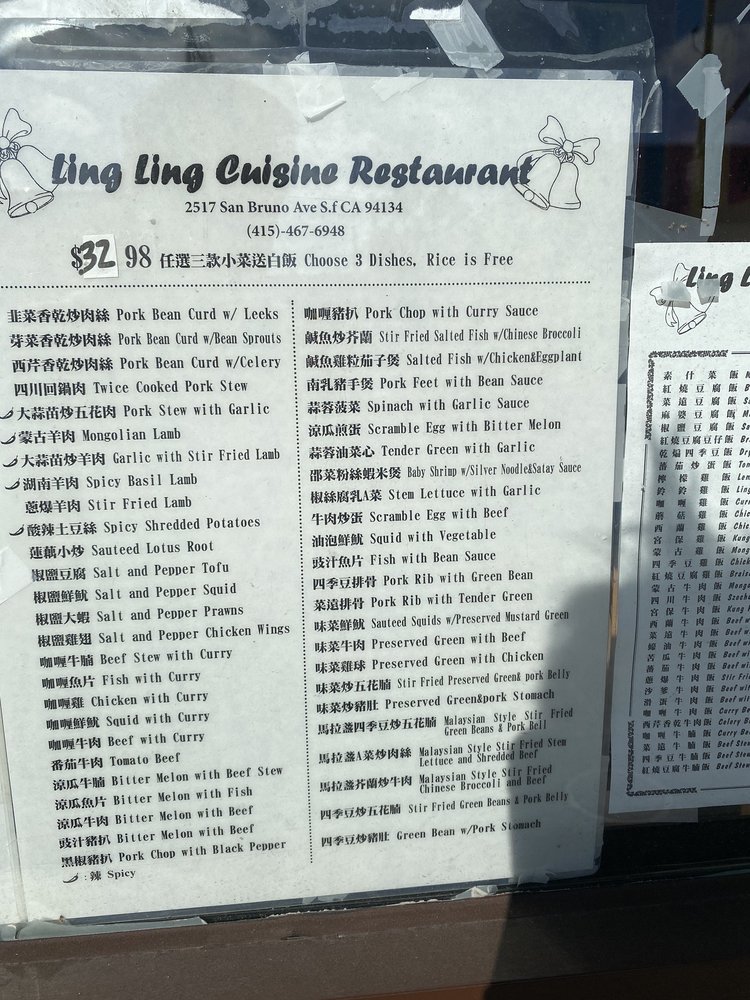 Ling Ling Cuisine Restaurant
2517 San Bruno Ave S.f CA 94134
(415)-467-6948
$32 98 任選三款小菜送白飯 Choose 3 Dishes, Rice is Free
韭菜香乾炒肉絲 Pork Bean Curd w/ Leeks
芽菜香乾炒肉絲 Pork Bean Curd w/Bean Sprouts
西芹香乾炒肉絲 Pork Bean Curd w/Celery
四川回鍋肉 Twice Cooked Pork Stew
大蒜苗炒五花肉 Pork Stew with Garlic
蒙古羊肉 Mongolian Lamb
大蒜苗炒羊肉 Garlic with Stir Fried Lamb
湖南羊肉 Spicy Basil Lamb
蔥爆羊肉 Stir Fried Lamb
酸辣土豆絲 Spicy Shredded Potatoes
蓮藕小炒 Sauteed Lotus Root
椒鹽豆腐 Salt and Pepper Tofu
椒鹽鮮魷 Salt and Pepper Squid
椒鹽大蝦 Salt and Pepper Prawns
椒鹽雞翅 Salt and Pepper Chicken Wings
咖喱牛腩 Beef Stew with Curry
咖喱魚片 Fish with Curry
咖喱雞 Chicken with Curry
咖喱鮮魷 Squid with Curry
咖喱牛肉 Beef with Curry
番茄牛肉 Tomato Beef
涼瓜牛腩 Bitter Melon with Beef Stew
涼瓜魚片 Bitter Melon with Fish
涼瓜牛肉 Bitter Melon with Beef
豉汁豬扒 Bitter Melon with Beef
黑椒豬扒 Pork Chop with Black Pepper
: 辣 Spicy
咖喱豬扒 Pork Chop with Curry Sauce
鹹魚炒芥蘭 Stir Fried Salted Fish w/Chinese Broccoli
鹹魚雞粒茄子煲 Salted Fish w/Chicken&Eggplant
南乳豬手煲 Pork Feet with Bean Sauce
蒜蓉菠菜 Spinach with Garlic Sauce
涼瓜煎蛋 Scramble Egg with Bitter Melon
蒜蓉油菜心 Tender Green with Garlic
邵菜粉絲蝦米煲 Baby Shrimp w/Silver Noodle&Satay Sauce
椒絲腐乳A菜 Stem Lettuce with Garlic
牛肉炒蛋 Scramble Egg with Beef
油泡鮮魷 Squid with Vegetable
豉汁魚片 Fish with Bean Sauce
四季豆排骨 Pork Rib with Green Bean
菜遠排骨 Pork Rib with Tender Green
味菜鮮魷 Sauteed Squids w/Preserved Mustard Green
味菜牛肉 Preserved Green with Beef
味菜雞球 Preserved Green with Chicken
味菜炒五花腩 Stir Fried Preserved Green& pork Belly
味菜炒豬肚 Preserved Green&pork Stomach
馬拉盞四季豆炒五花腩 Malaysian Style Stir Fried
Green Beans & Pork Bell
馬拉盞A菜炒肉絲 Malaysian Style Stir Fried Stem
Lettuce and Shredded Beef
馬拉盞芥蘭炒牛肉 Malaysian Style Stir Fried
Chinese Broccoli and Beef
四季豆炒五花腩 Stir Fried Green Beans & Pork Belly
四季豆炒豬肚 Green Bean w/Pork Stomach
Ling L
素什菜飯
紅燒豆腐飯
菜遠豆腐飯
麻婆豆腐飯
椒鹽豆腐飯
紅燒豆腐豆仔飯
乾煸四季豆飯
蕃茄炒蛋飯
檸檬雞飯
鈴鈴雞飯
咖喱雞飯
蘑菇雞飯
西蘭雞飯
宮保雞飯
蒙古雞飯
四季豆雞飯
紅燒豆腐雞飯
蒙古牛肉飯
四川牛肉飯
宮保牛肉飯
西蘭牛肉飯
菜遠牛肉飯
蠔油牛肉飯
苦瓜牛肉飯
蕃茄牛肉飯
蔥爆牛肉飯
沙爹牛肉飯
滑蛋牛肉飯
咖喱牛肉飯
西芹香乾牛肉飯
咖喱牛腩飯
菜遠牛腩飯
四季豆牛腩飯
紅燒豆腐牛腩飯